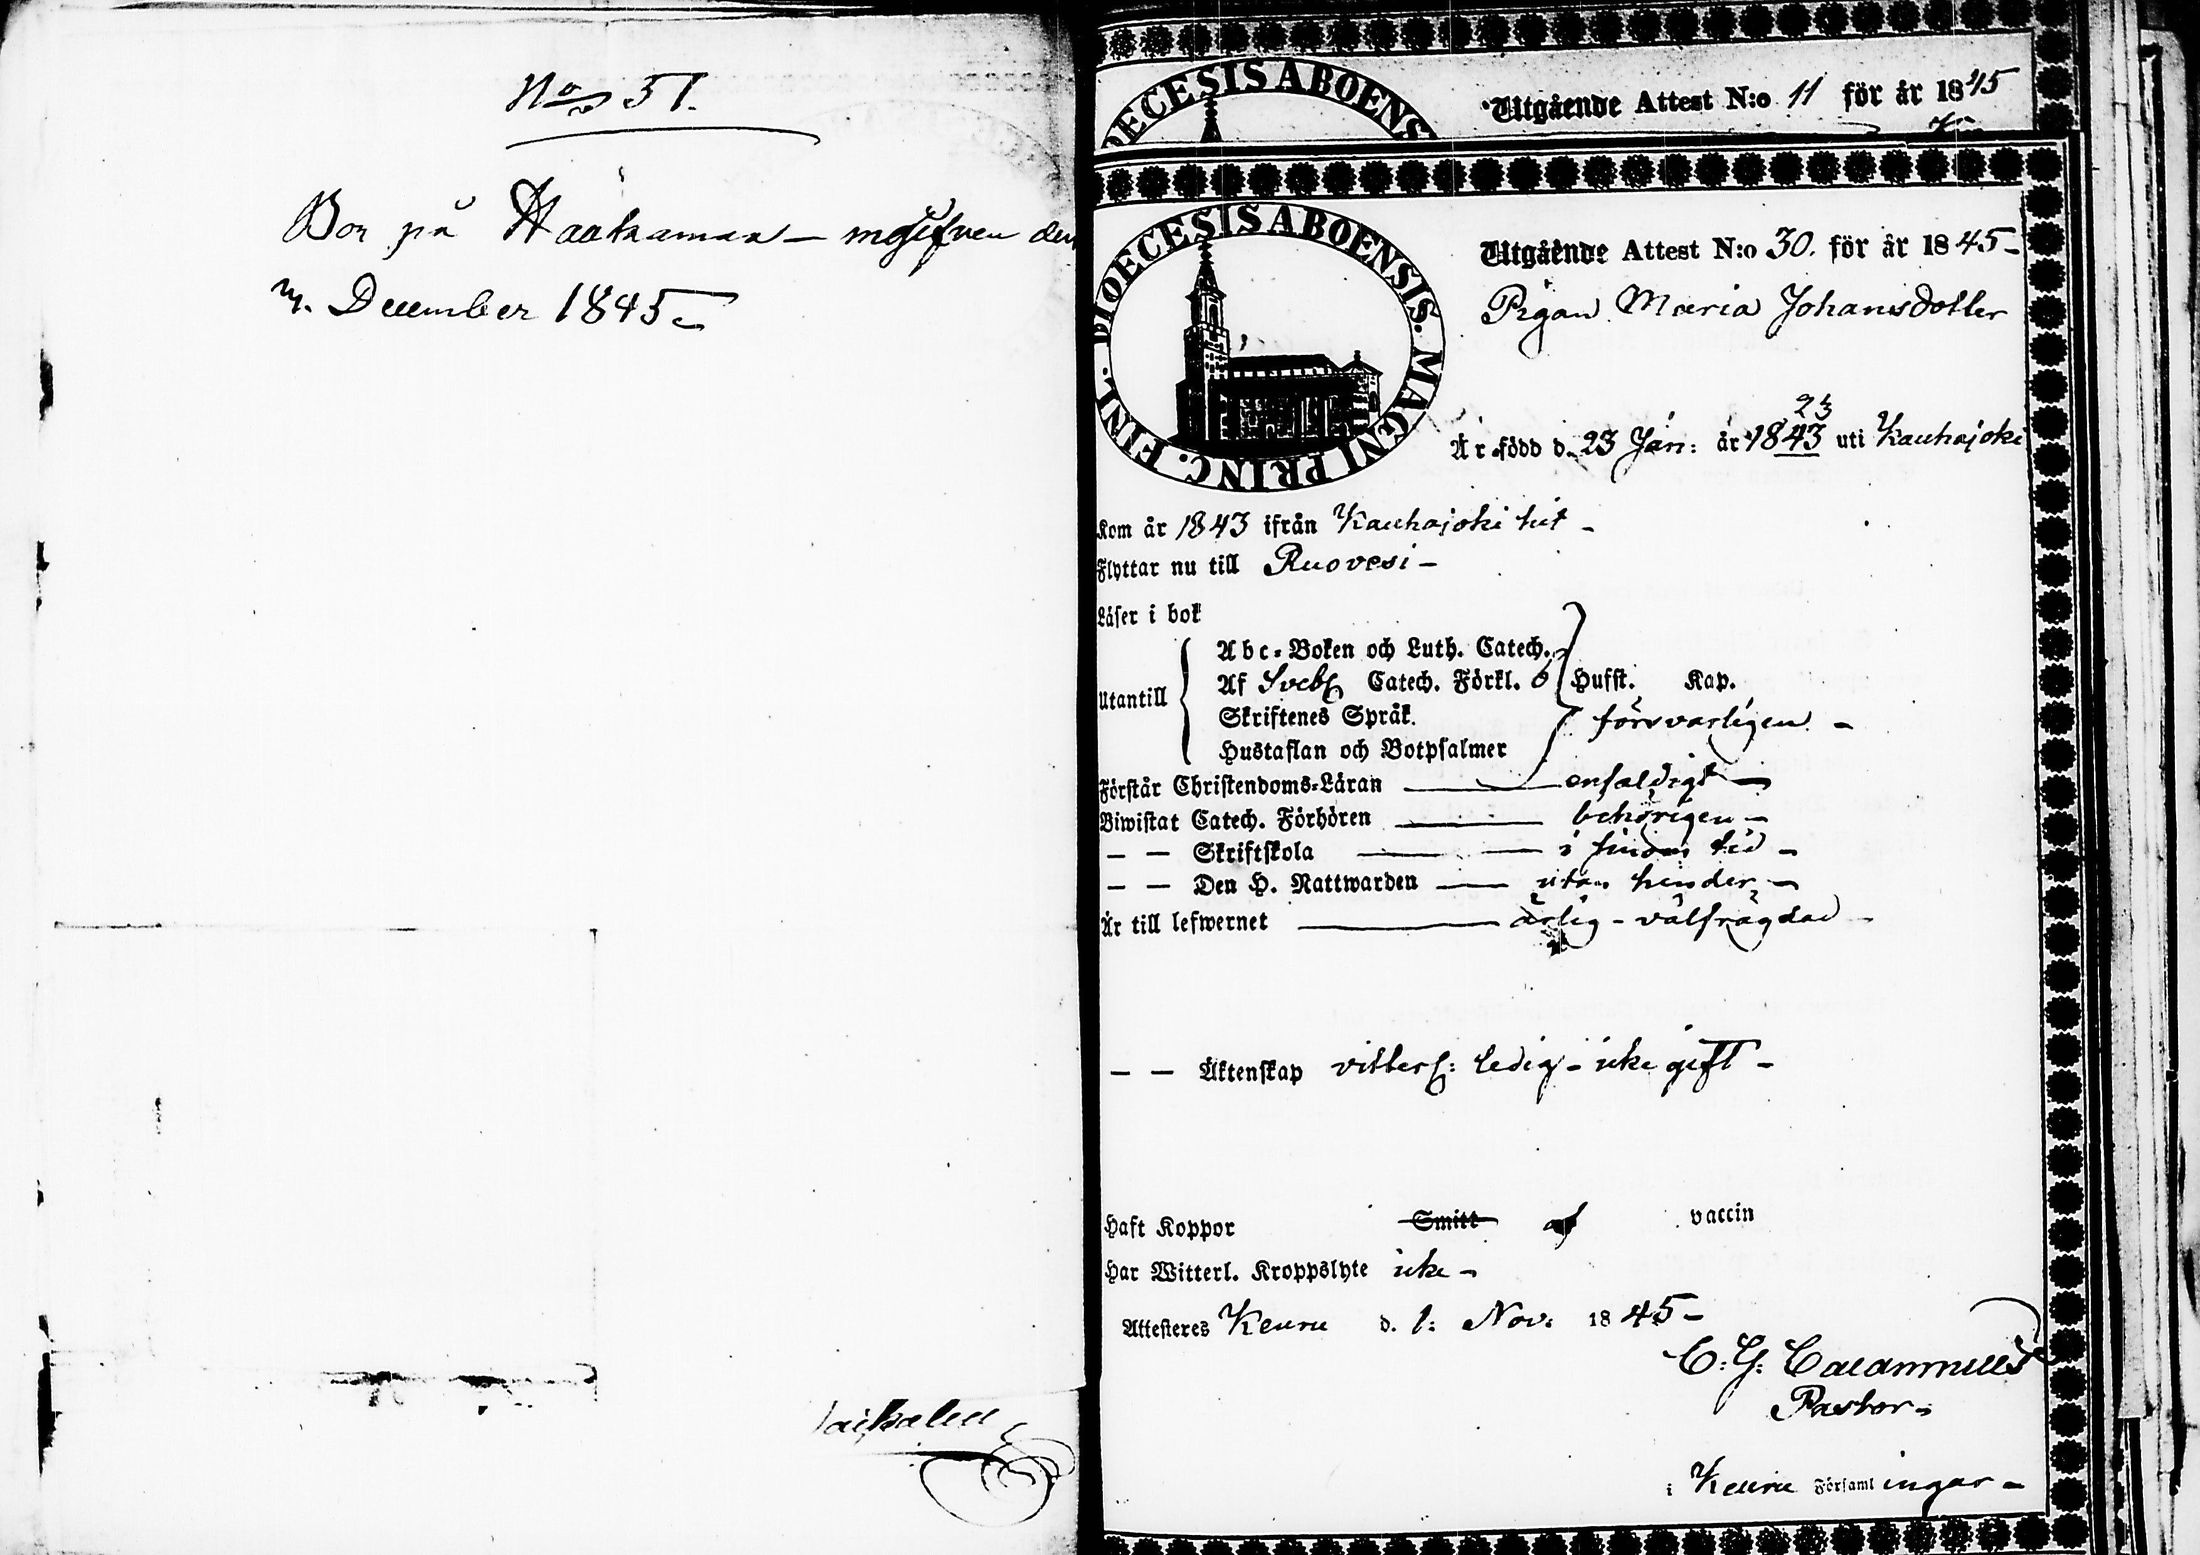 No 51.
Bor på Haakamaa — ingifven den
7. December 1845
DIOECESIS ABOENSIS
Utgående Attest N:o 11 för år 1845
DIOECESIS ABOENSIS. MAGNI PRINC. FINL.
Utgående Attest N:o 30. för år 1845 –
Pigan Maria Johansdotter
23
Är född d. 23 Jan: år 1843 uti Kauhajoki
Kom år 1843 ifrån Kauhajoki hit –
Flyttar nu till Ruovesi –
Läser i bok
Abc-Boken och Luth. Catech.
Utantill
Af Sveb Catech. Förkl. 6 Hufst. Kap.
Skriftenes Språk. försvarligen –
Hustaflan och Botpsalmer
Förstår Christendoms-Läran — enfaldigt –
Biwistat Catech. Förhören — behörigen –
— — Skriftskola — i sinom tid –
— — Den H. Nattwarden — utan hinder –
Är till lefwernet — ärlig – välfrägdad –
— — Äktenskap vitterl: ledig – icke gift –
Haft Koppor Smitt af vaccin
Har Witterl. Kroppslyte icke –
Attesteres Keuru d. 1: Nov: 1845 –
C: G: Calamnius
Pastor –
i Keuru Församlingar –